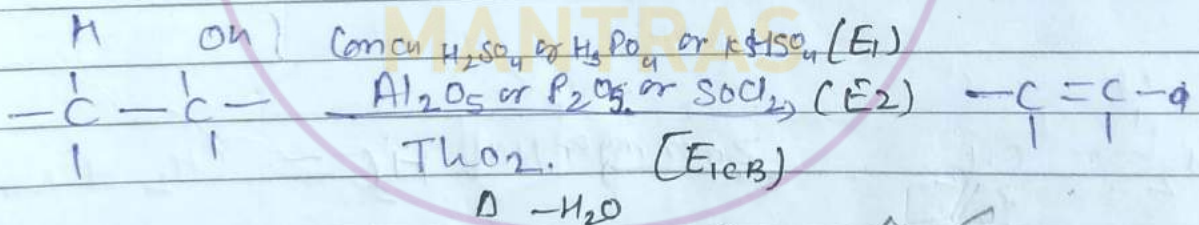 MANTRAS
H OH Concn H2SO4 or H3PO4 or KHSO4 (E1)
— C — C — Al2O5 or P2O5 or SOCl2, (E2) — C = C —
ThO2. (E1CB)
Δ -H2O